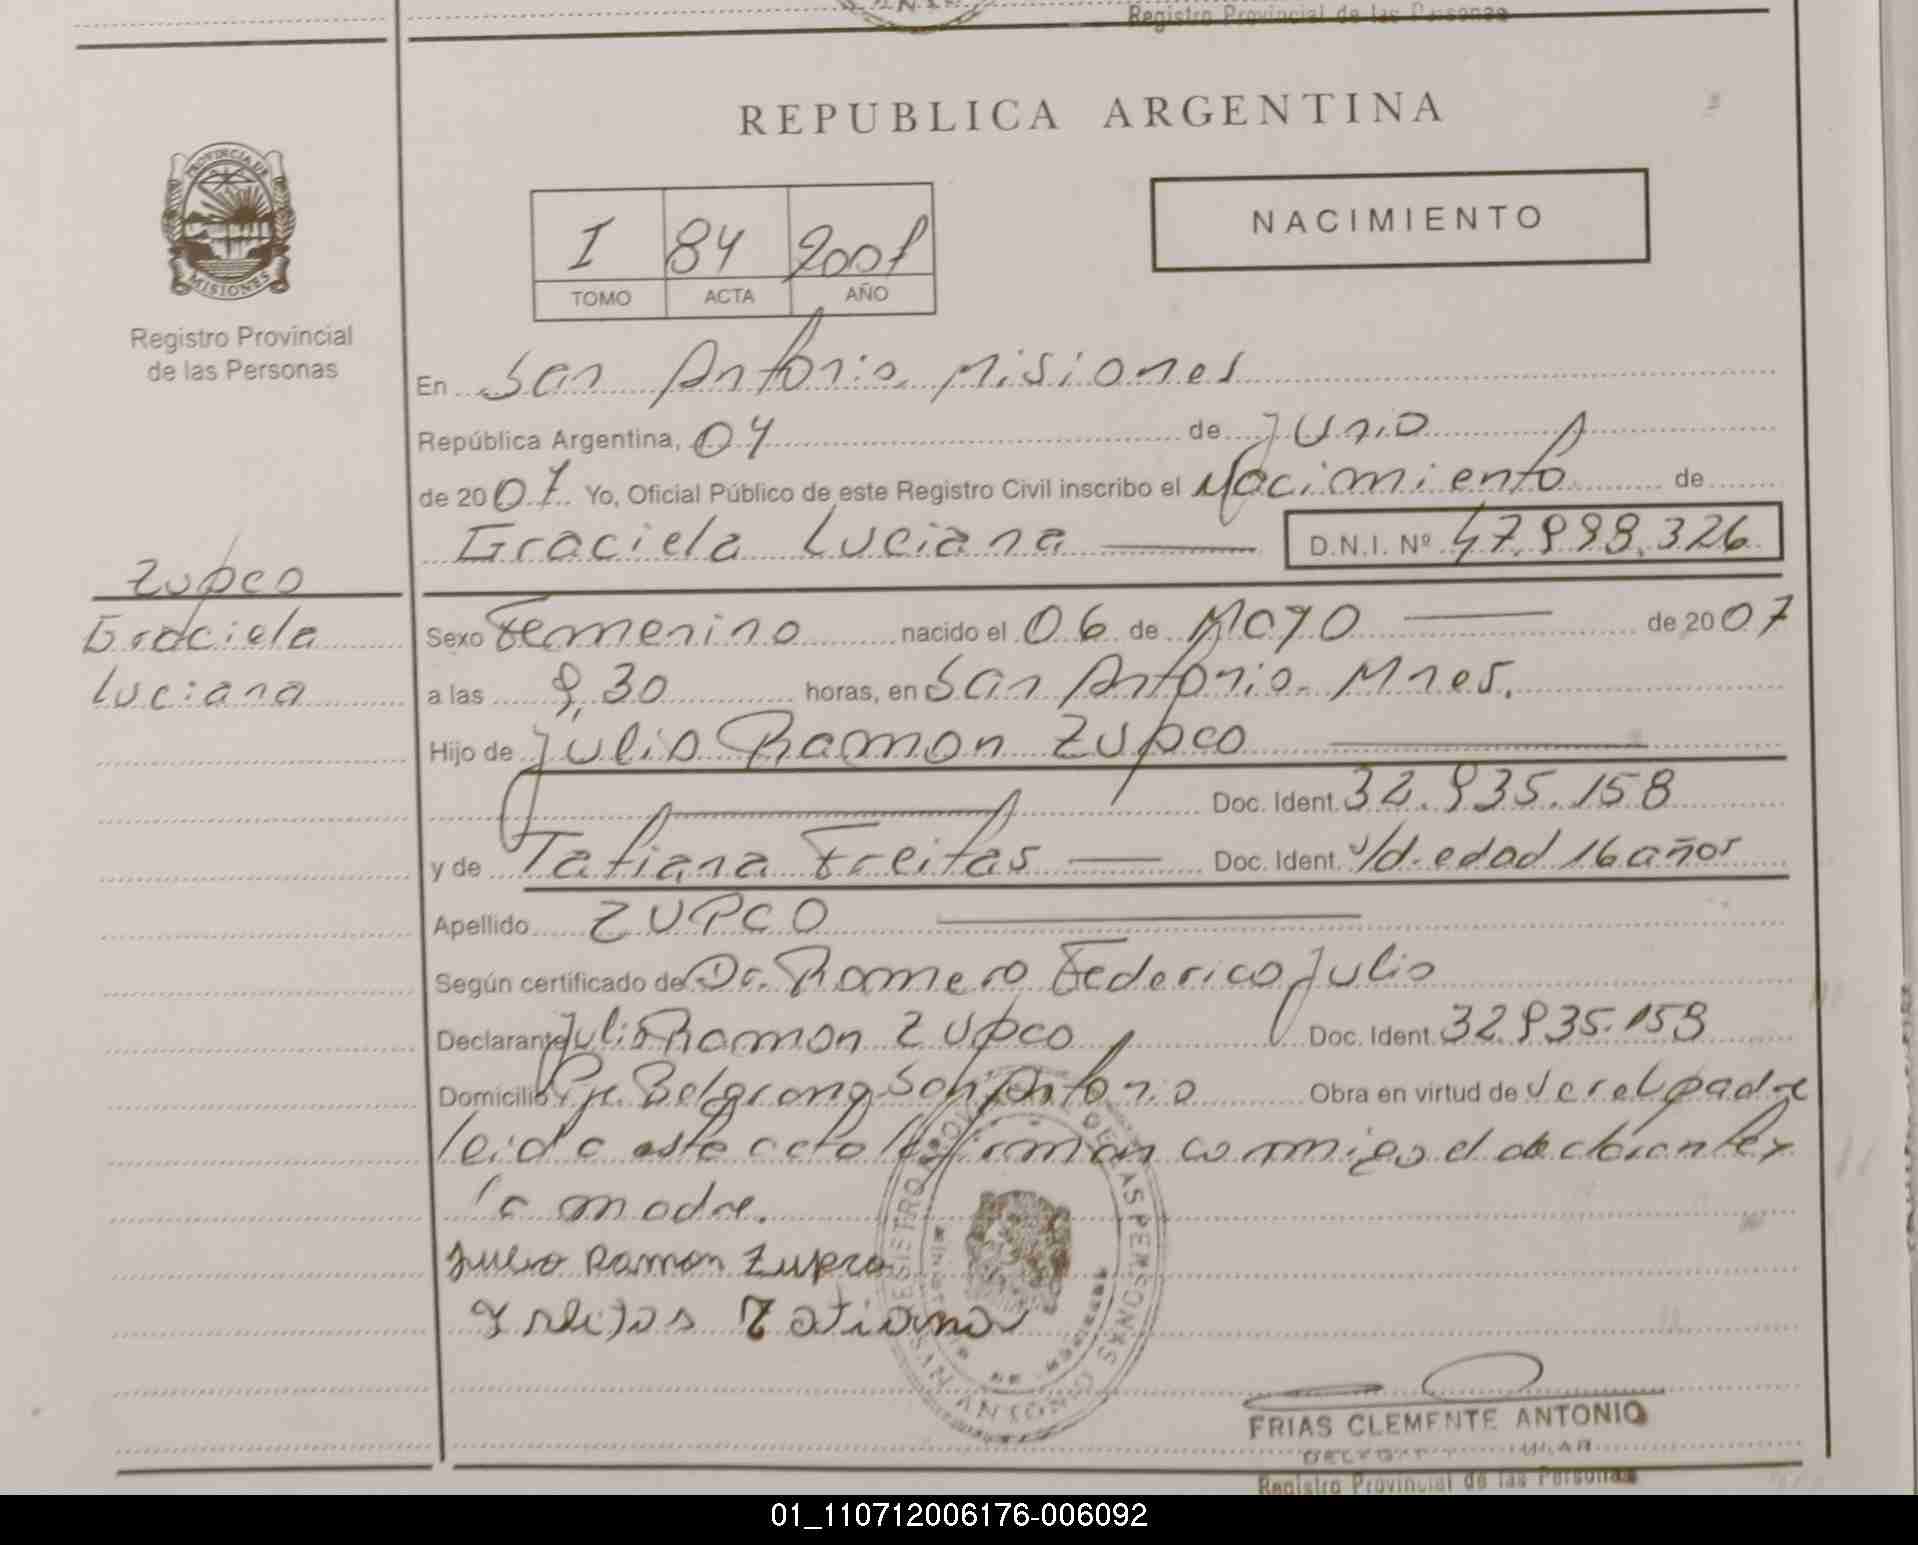 Registro Provincial de las Personas
REPUBLICA ARGENTINA
PROVINCIA DE
MISIONES
Registro Provincial
de las Personas
NACIMIENTO
I 84 2007
TOMO ACTA AÑO
En San Antonio Misiones
República Argentina, 04 de Junio
de 2007 Yo, Oficial Público de este Registro Civil inscribo el Nacimiento de
Graciela Luciana D.N.I. Nº 47.998.326
Zupco
Graciela
Luciana
Sexo Femenino nacido el 06 de Mayo de 2007
a las 9,30 horas, en San Antonio. Mnes.
Hijo de Julio Ramon Zupco
Doc. Ident. 32.935.158
y de Tatiana Freitas Doc. Ident. edad 16 años
Apellido ZUPCO
Según certificado de Dr. Romero Federico Julio
Declarante Julio Ramon Zupco Doc. Ident. 32.935.158
Domicilio Pje. Belgrano San Antonio Obra en virtud de ser el padre
leida este acta la firman conmigo el declarante y
la madre.
Julio Ramon Zupco
Freitas Tatiana
REGISTRO PROV. DE LAS PERSONAS
SAN ANTONIO
FRIAS CLEMENTE ANTONIO
Registro Provincial de las Personas
01_110712006176-006092